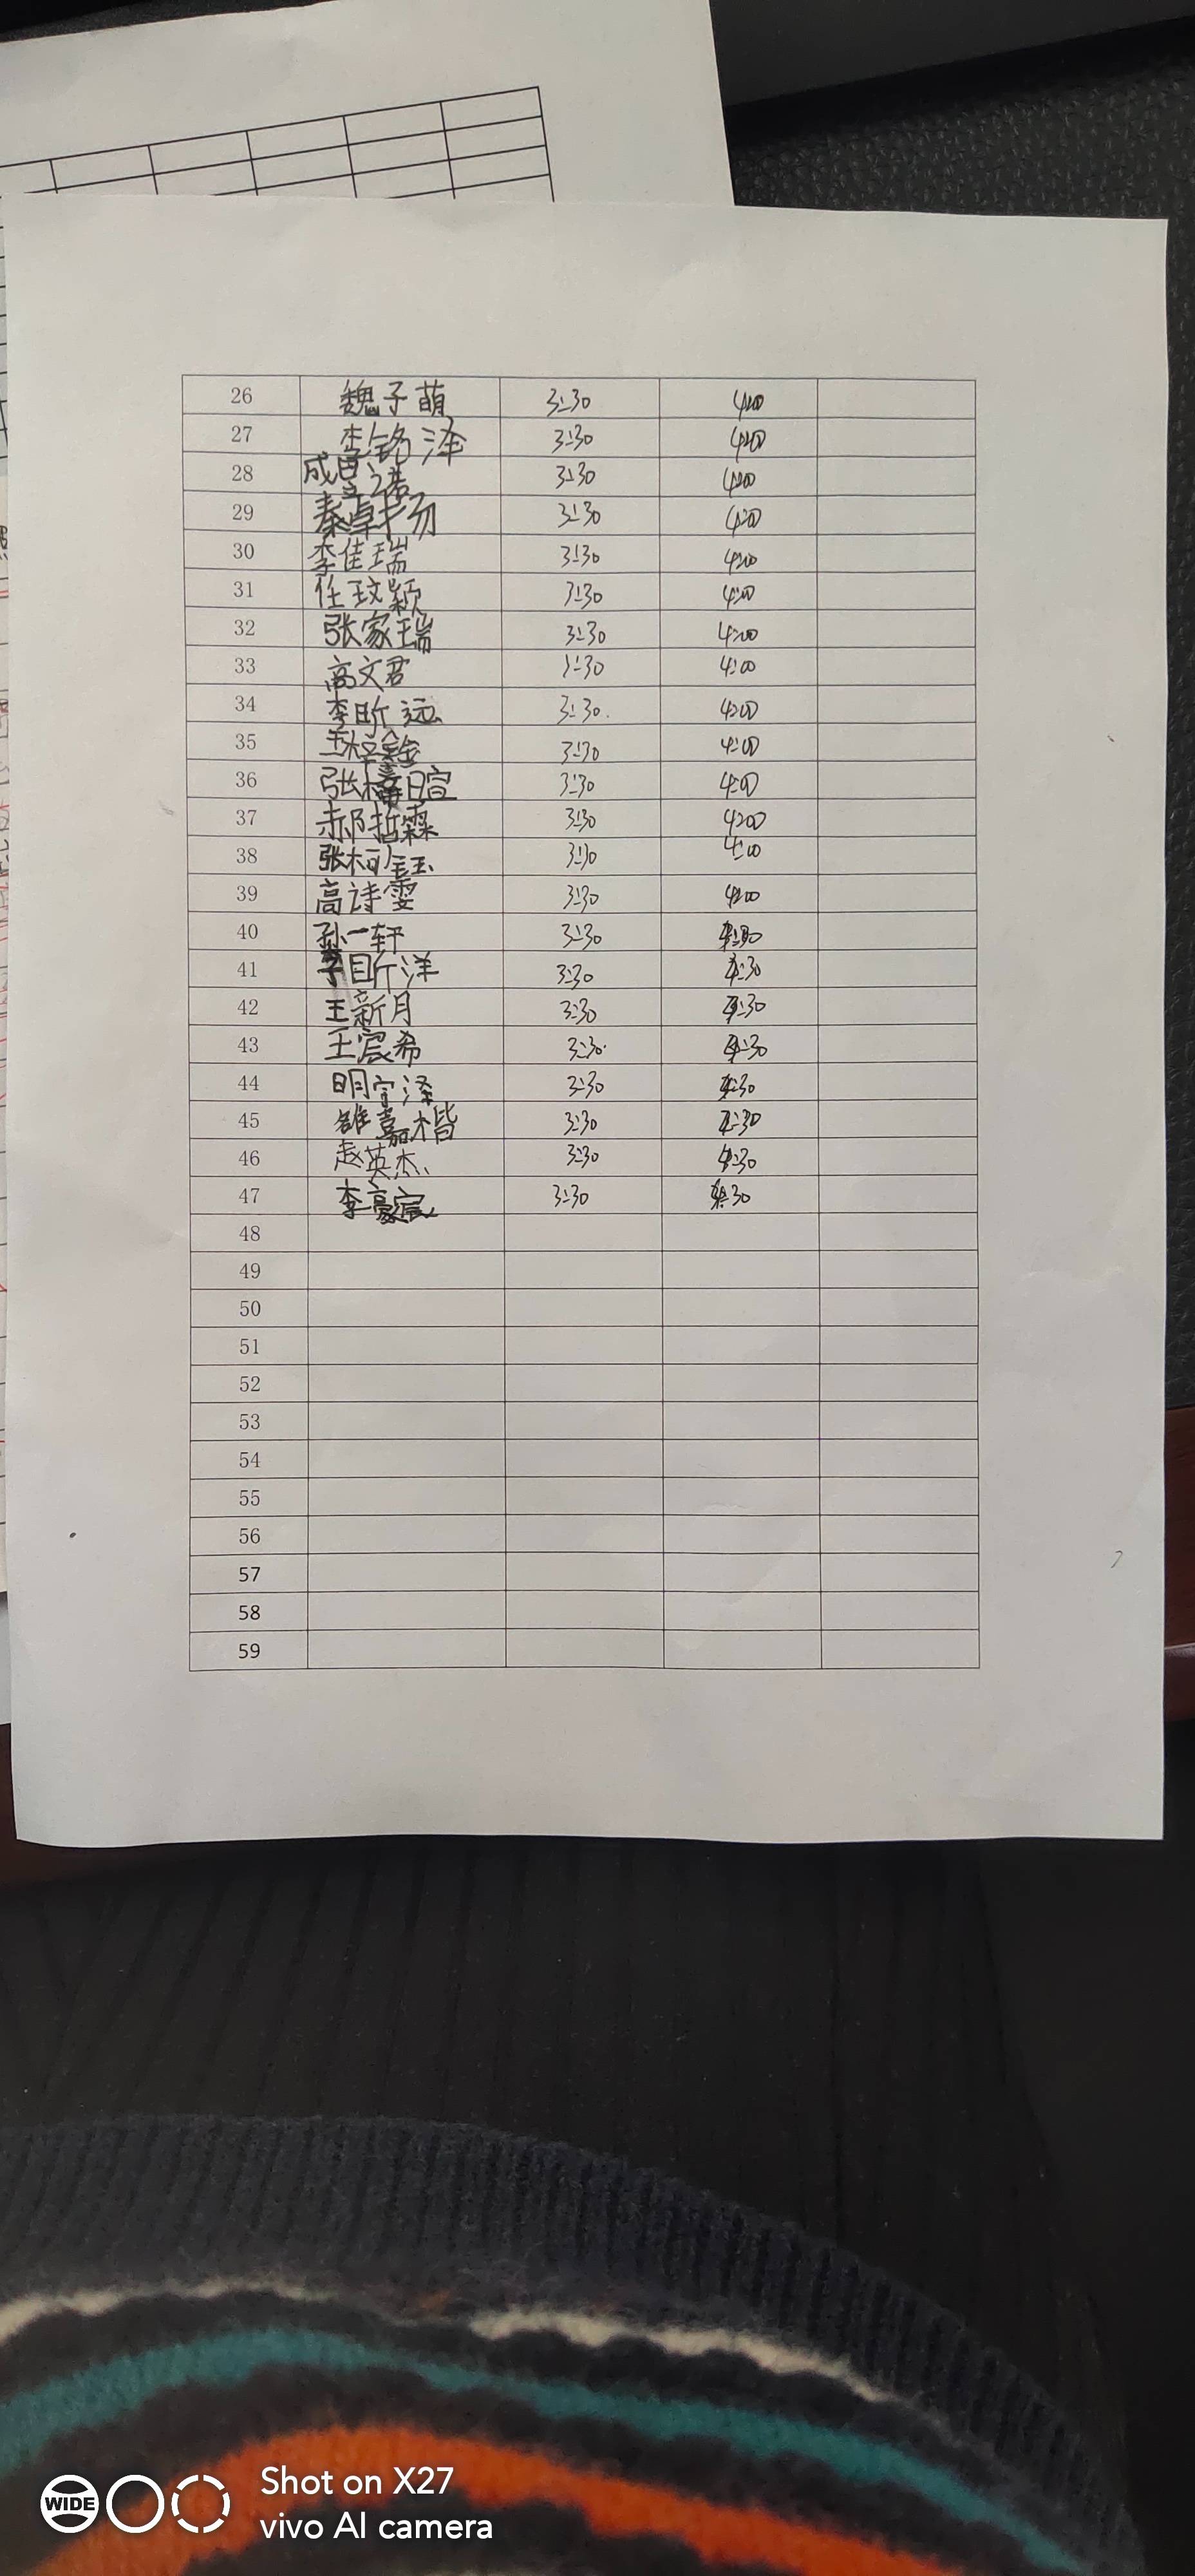 26 魏子萌 3:30 4:00
27 李铭泽 3:30 4:00
28 成昱诺 3:30 4:00
29 秦卓扬 3:30 4:00
30 李佳瑞 3:30 4:00
31 任玟颖 3:30 4:00
32 张家瑞 3:30 4:00
33 高文君 3:30 4:00
34 李昕远 3:30 4:00
35 3:30 4:00
36 3:30 4:00
37 郝哲霖 3:30 4:00
38 张柯钰 3:30 4:00
39 高诗雯 3:30 4:00
40 孙一轩 3:30
41 李昕洋 3:30 4:30
42 王新月 3:30 4:30
43 王宸希 3:30 4:30
44 明宇泽 3:30 4:30
45 雒嘉楷 3:30 4:30
46 赵英杰 3:30 4:30
47 李豪宸 3:30 4:30
48
49
50
51
52
53
54
55
56
57
58
59
WIDE
Shot on X27
vivo AI camera